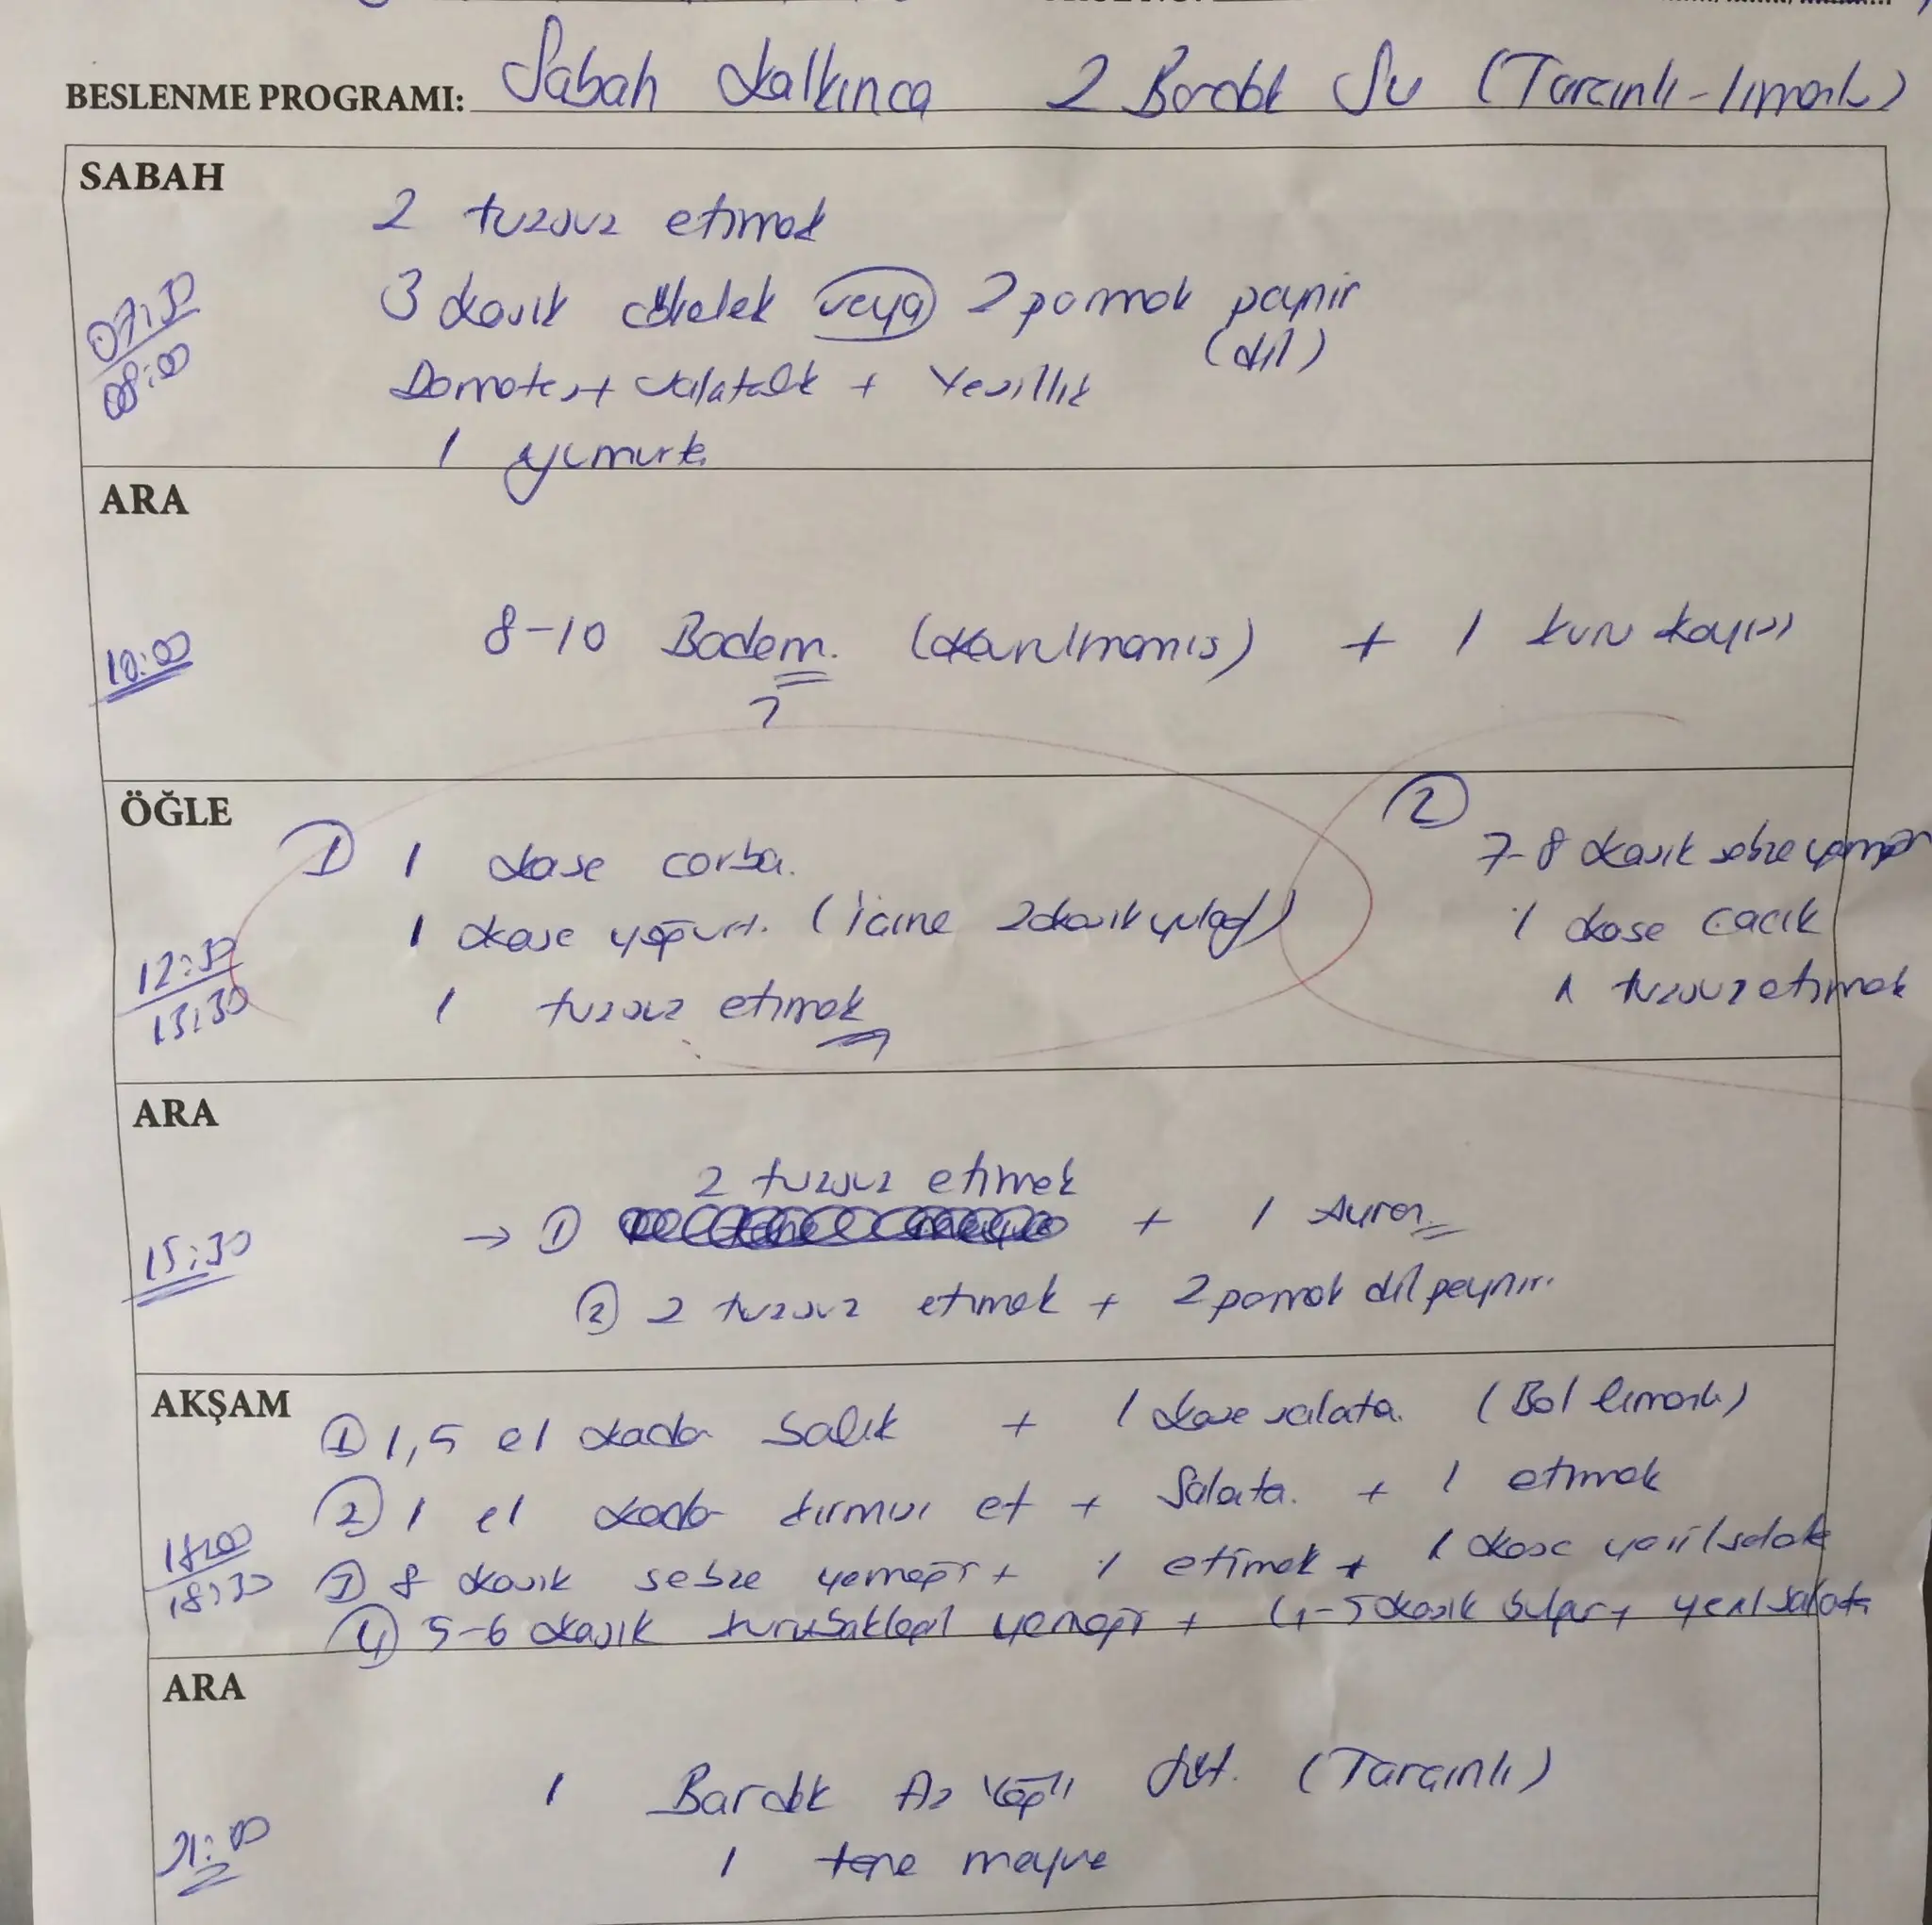 BESLENME PROGRAMI: Sabah Kalkınca 2 Bardak Su (Tarçınlı-limonlu)
SABAH
2 tuzsuz etimek
07:30
08:00
3 kaşık çökelek veya 2 parmak peynir
(dil)
Domates + salatalık + Yeşillik
1 yumurta
ARA
10:00
8-10 Badem. (kavrulmamış) + 1 kuru kayısı
ÖĞLE
12:30
13:30
① 1 kase çorba.
1 kase yoğurt. (içine 2 kaşık yulaf)
1 tuzsuz etimek
②
7-8 kaşık sebze yemeği
1 kase cacık
1 tuzsuz etimek
ARA
15:30
2 tuzsuz etimek
→ ① + 1 Ayran
② 2 tuzsuz etimek + 2 parmak dil peynir.
AKŞAM
18:00
18:30
① 1,5 el kadar balık + 1 kase salata. (Bol limonlu)
② 1 el kadar kırmızı et + Salata. + 1 etimek
③ 8 kaşık sebze yemeği + 1 etimek + 1 kase yeşil salata
④ 5-6 kaşık kurubaklagil yemeği + 4-5 kaşık bulgur + yeşil salata
ARA
21:00
1 Bardak Az Yağlı Süt. (Tarçınlı)
1 tane meyve